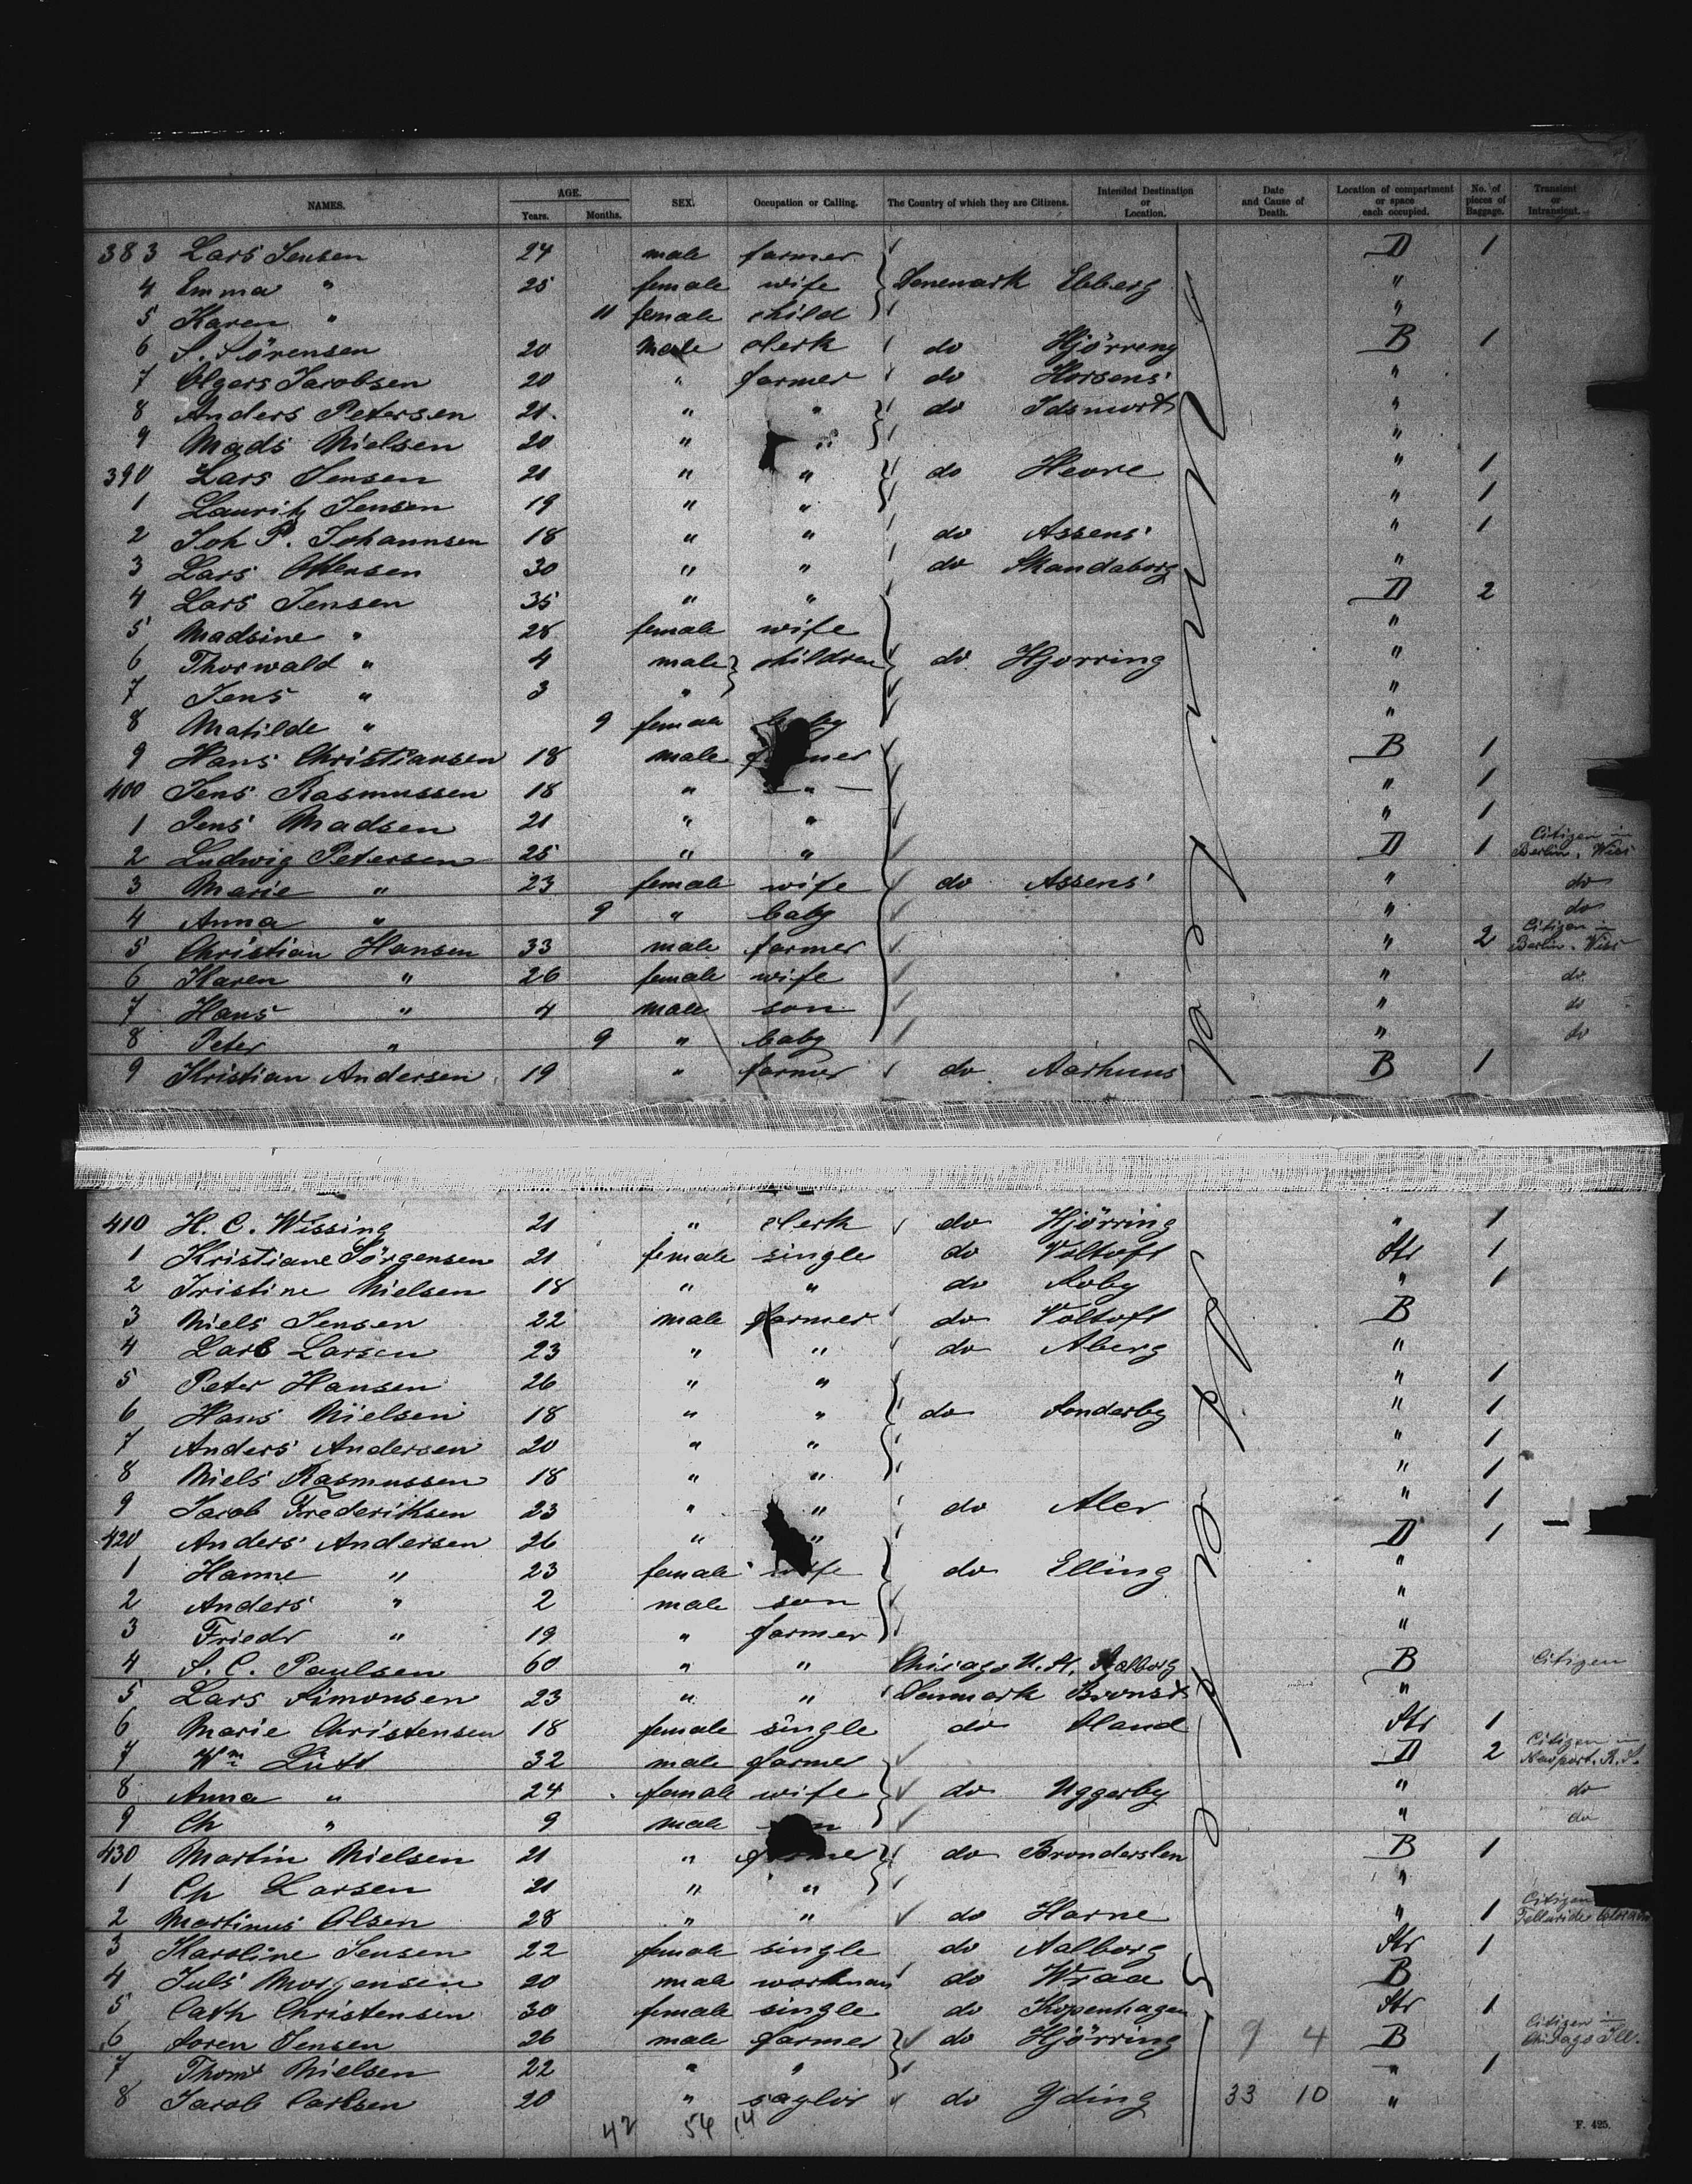 NAMES. AGE. Years. Months. SEX. Occupation or Calling. The Country of which they are Citizens. Intended Destination or Location. Date and Cause of Death. Location of compartment or space each occupied. No. of pieces of Baggage. Transient or Intransient.
383 Lars Jensen 24 male farmer D 1
4 Emma " 25 female wife Denemark Ebberg "
5 Karen " 11 female child "
6 S. Sörensen 20 male clerk do Hjörreng B 1
7 Olgers Jacobsen 20 " farmer do Horsens "
8 Anders Petersen 21 " " do "
9 Mads Nielsen 20 " " "
390 Lars Jensen 21 " " do " 1
1 Lauritz Jensen 19 " " " 1
2 Joh P. Johannsen 18 " " do Assens " 1
3 Lars 30 " " do Skandaborg "
4 Lars Jensen 35 " " D 2
5 Madsine " 28 female wife "
6 Thorwald " 4 male children do Hjorring "
7 Jens " 3 " "
8 Matilde " 9 female "
9 Hans Christiansen 18 male farmer B 1
400 Jens Rasmussen 18 " " " 1
1 Jens Madsen 21 " " " 1
2 Ludwig Petersen 25 " " D 1 Citizen in Berlin. Wisc
3 Marie " 23 female wife do Assens " do
4 Anna " 9 " baby " do
5 Christian Hansen 33 male farmer " 2 Citizen in Berlin. Wisc
6 Karen " 26 female wife " do
7 Hans " 4 male son " do
8 Peter " 9 " baby " do
9 Kristian Andersen 19 " farmer do Aarhuus B 1
410 H. C. Wissing 21 " clerk do Hjörring " 1
1 Kristiane Jörgensen 21 female single do Voltoft Str 1
2 Kristine Nielsen 18 " " do " 1
3 Niels Jensen 22 male farmer do Voltoft B
4 Lars Larsen 23 " " do Aberg "
5 Peter Hansen 26 " " " 1
6 Hans Nielsen 18 " " do Sonderby " 1
7 Anders Andersen 20 " " " 1
8 Niels Rasmussen 18 " " " 1
9 Jacob Frederiksen 23 " " do Aler " 1
420 Anders Andersen 26 " " D 1
1 Hanne " 23 female wife do Elling "
2 Anders " 2 male son "
3 Friedr " 19 " farmer "
4 S. C. Paulsen 60 " " Chicago U.St. Aalborg B Citizen
5 Lars Simonsen 23 " " Denmark "
6 Marie Christensen 18 female single do Str 1
7 Wm Lütt 32 male farmer D 2 Citizen in Newport. R.I.
8 Anna " 24 female wife do Uggerby " do
9 Ch " 9 male son " do
430 Martin Nielsen 21 " farmer do Bronderslen B 1
1 Ch Larsen 21 " " "
2 Martinus Olsen 28 " " do Harne " 1 Citizen Telluride Colorado
3 Karoline Jensen 22 female single do Aalborg Str 1
4 Juls Morgensen 20 male workman do Wraa B
5 Cath Christensen 30 female single do Kopenhagen Str 1
6 Soren Jensen 26 male farmer do Hjörring 9 4 B Citizen in Chicago Ill.
7 Thom Nielsen 22 " " " 1
8 Jacob Carlsen 20 " saylor do Yding 33 10 "
42 54 14
F. 425.